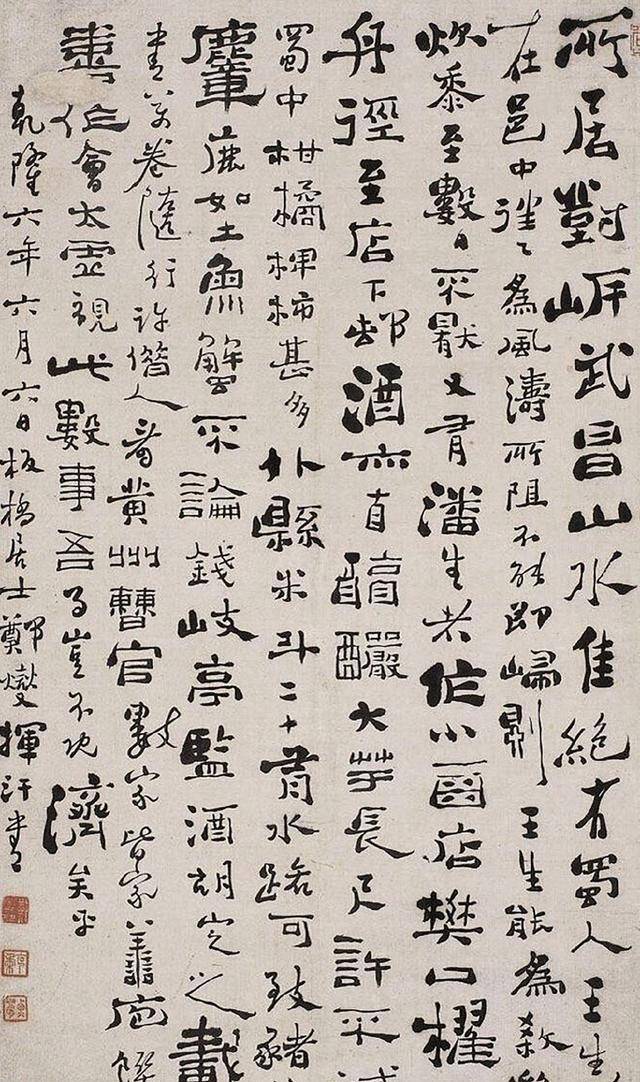 所居對岸武昌山水佳絕有蜀人王生
在邑中往往為風濤所阻不能即歸則王生能為殺
炊黍至數日不厭又有潘生者作小酒店樊口櫂
舟徑至店下邨酒亦自醇釅大芋長尺許不
蜀中柑橘椑柿甚多外縣米斗二十有水路可致豬
麞鹿如土魚蟹不論錢岐亭監酒胡定之載
書萬卷隨行許借人看黃州曹官數家皆家善庖饌
喜作會太虛視此數事吾事豈不既濟矣乎
乾隆六年六月六日板橋居士鄭燮揮汗書